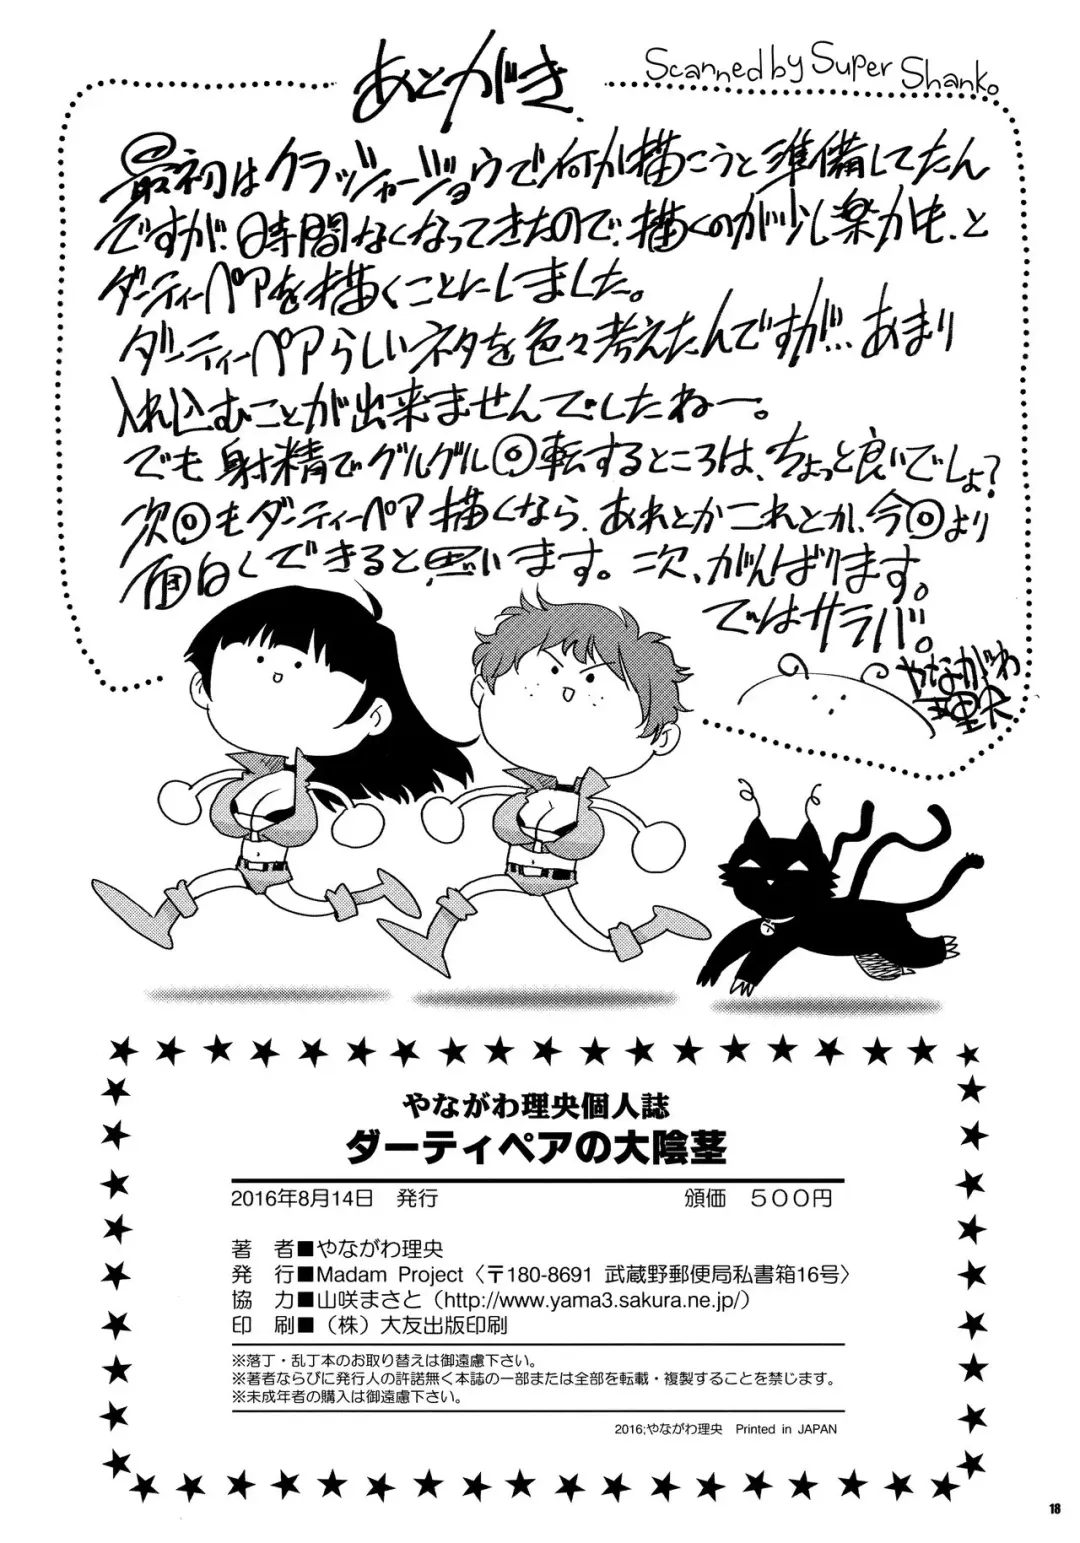 あとがき
Scanned by Super Shanko
最初はクラッシャージョウで何か描こうと準備してたん
ですが、時間なくなってきたので、描くのが少し楽かも、と
ダーティーペアを描くことにしました。
ダーティーペアらしいネタを色々考えたんですが…あまり
入れ込むことが出来ませんでしたねー。
でも射精でグルグル回転するところは、ちょっと良いでしょ?
次回もダーティーペア描くなら、あれとかこれとか、今回より
面白くできると思います。次、がんばります。
ではサラバ。
やながわ
理央
やながわ理央個人誌
ダーティペアの大陰茎
2016年8月14日 発行 頒価 500円
著 者■やながわ理央
発 行■Madam Project〈〒180-8691 武蔵野郵便局私書箱16号〉
協 力■山咲まさと（http://www.yama3.sakura.ne.jp/）
印 刷■（株）大友出版印刷
※落丁・乱丁本のお取り替えは御遠慮下さい。
※著者ならびに発行人の許諾無く本誌の一部または全部を転載・複製することを禁じます。
※未成年者の購入は御遠慮下さい。
2016;やながわ理央 Printed in JAPAN
18